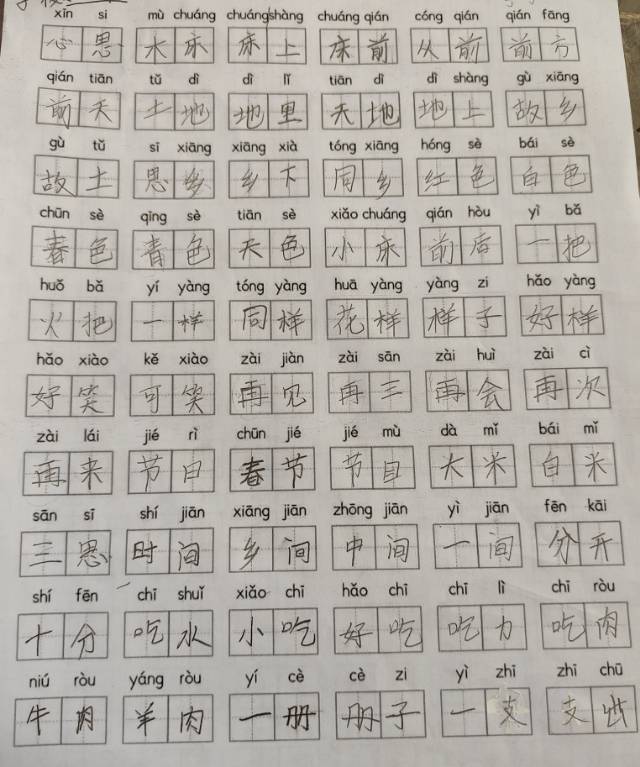 xīn si mù chuáng chuáng shàng chuáng qián cóng qián qián fāng
心思 木床 床上 床前 从前 前方
qián tiān tǔ dì dì lǐ tiān dì dì shàng gù xiāng
前天 土地 地里 天地 地上 故乡
gù tǔ sī xiāng xiāng xià tóng xiāng hóng sè bái sè
故土 思乡 乡下 同乡 红色 白色
chūn sè qīng sè tiān sè xiǎo chuáng qián hòu yì bǎ
春色 青色 天色 小床 前后 一把
huǒ bǎ yí yàng tóng yàng huā yàng yàng zi hǎo yàng
火把 一样 同样 花样 样子 好样
hǎo xiào kě xiào zài jiàn zài sān zài huì zài cì
好笑 可笑 再见 再三 再会 再次
zài lái jié rì chūn jié jié mù dà mǐ bái mǐ
再来 节日 春节 节目 大米 白米
sān sī shí jiān xiāng jiān zhōng jiān yì jiān fēn kāi
三思 时间 乡间 中间 一间 分开
shí fēn chī shuǐ xiǎo chī hǎo chī chī lì chī ròu
十分 吃水 小吃 好吃 吃力 吃肉
niú ròu yáng ròu yí cè cè zi yì zhī zhī chū
牛肉 羊肉 一册 册子 一支 支出